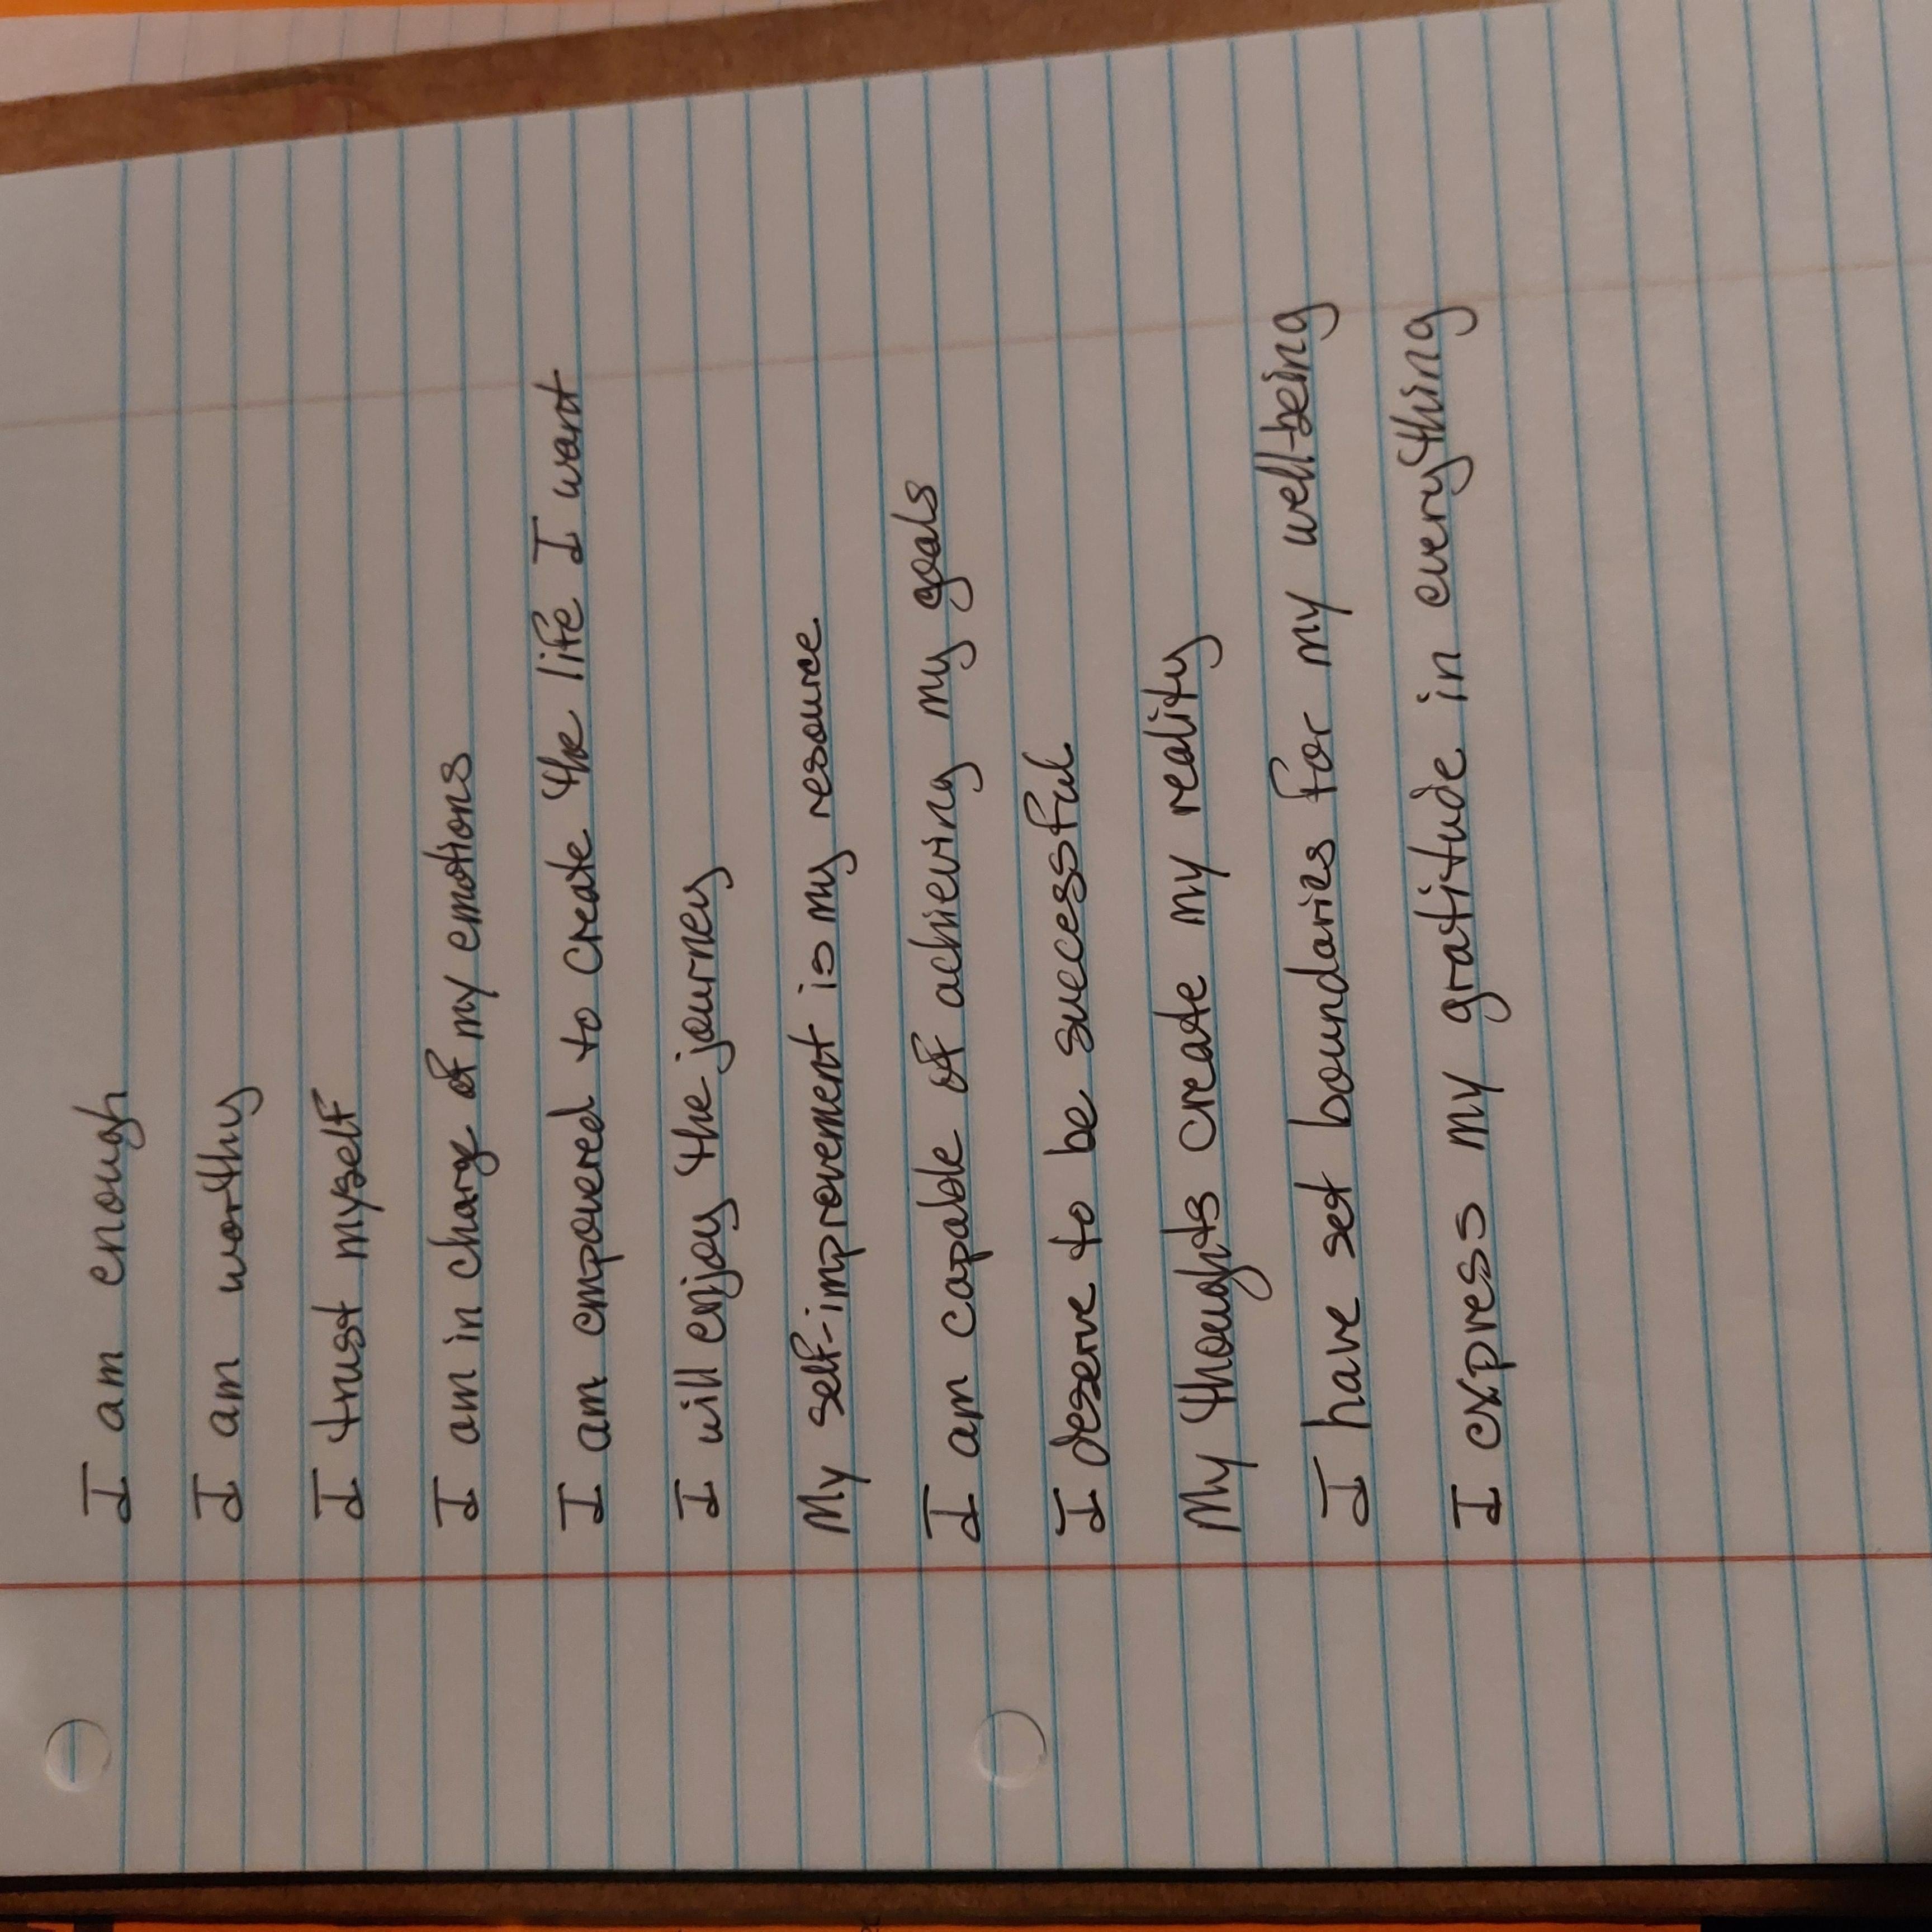 I am enough
I am worthy
I trust myself
I am in charge of my emotions
I am empowered to create the life I want
I will enjoy the journey
My self-improvement is my resource
I am capable of achieving my goals
I deserve to be successful
My thoughts create my reality
I have set boundaries for my well-being
I express my gratitude in everything